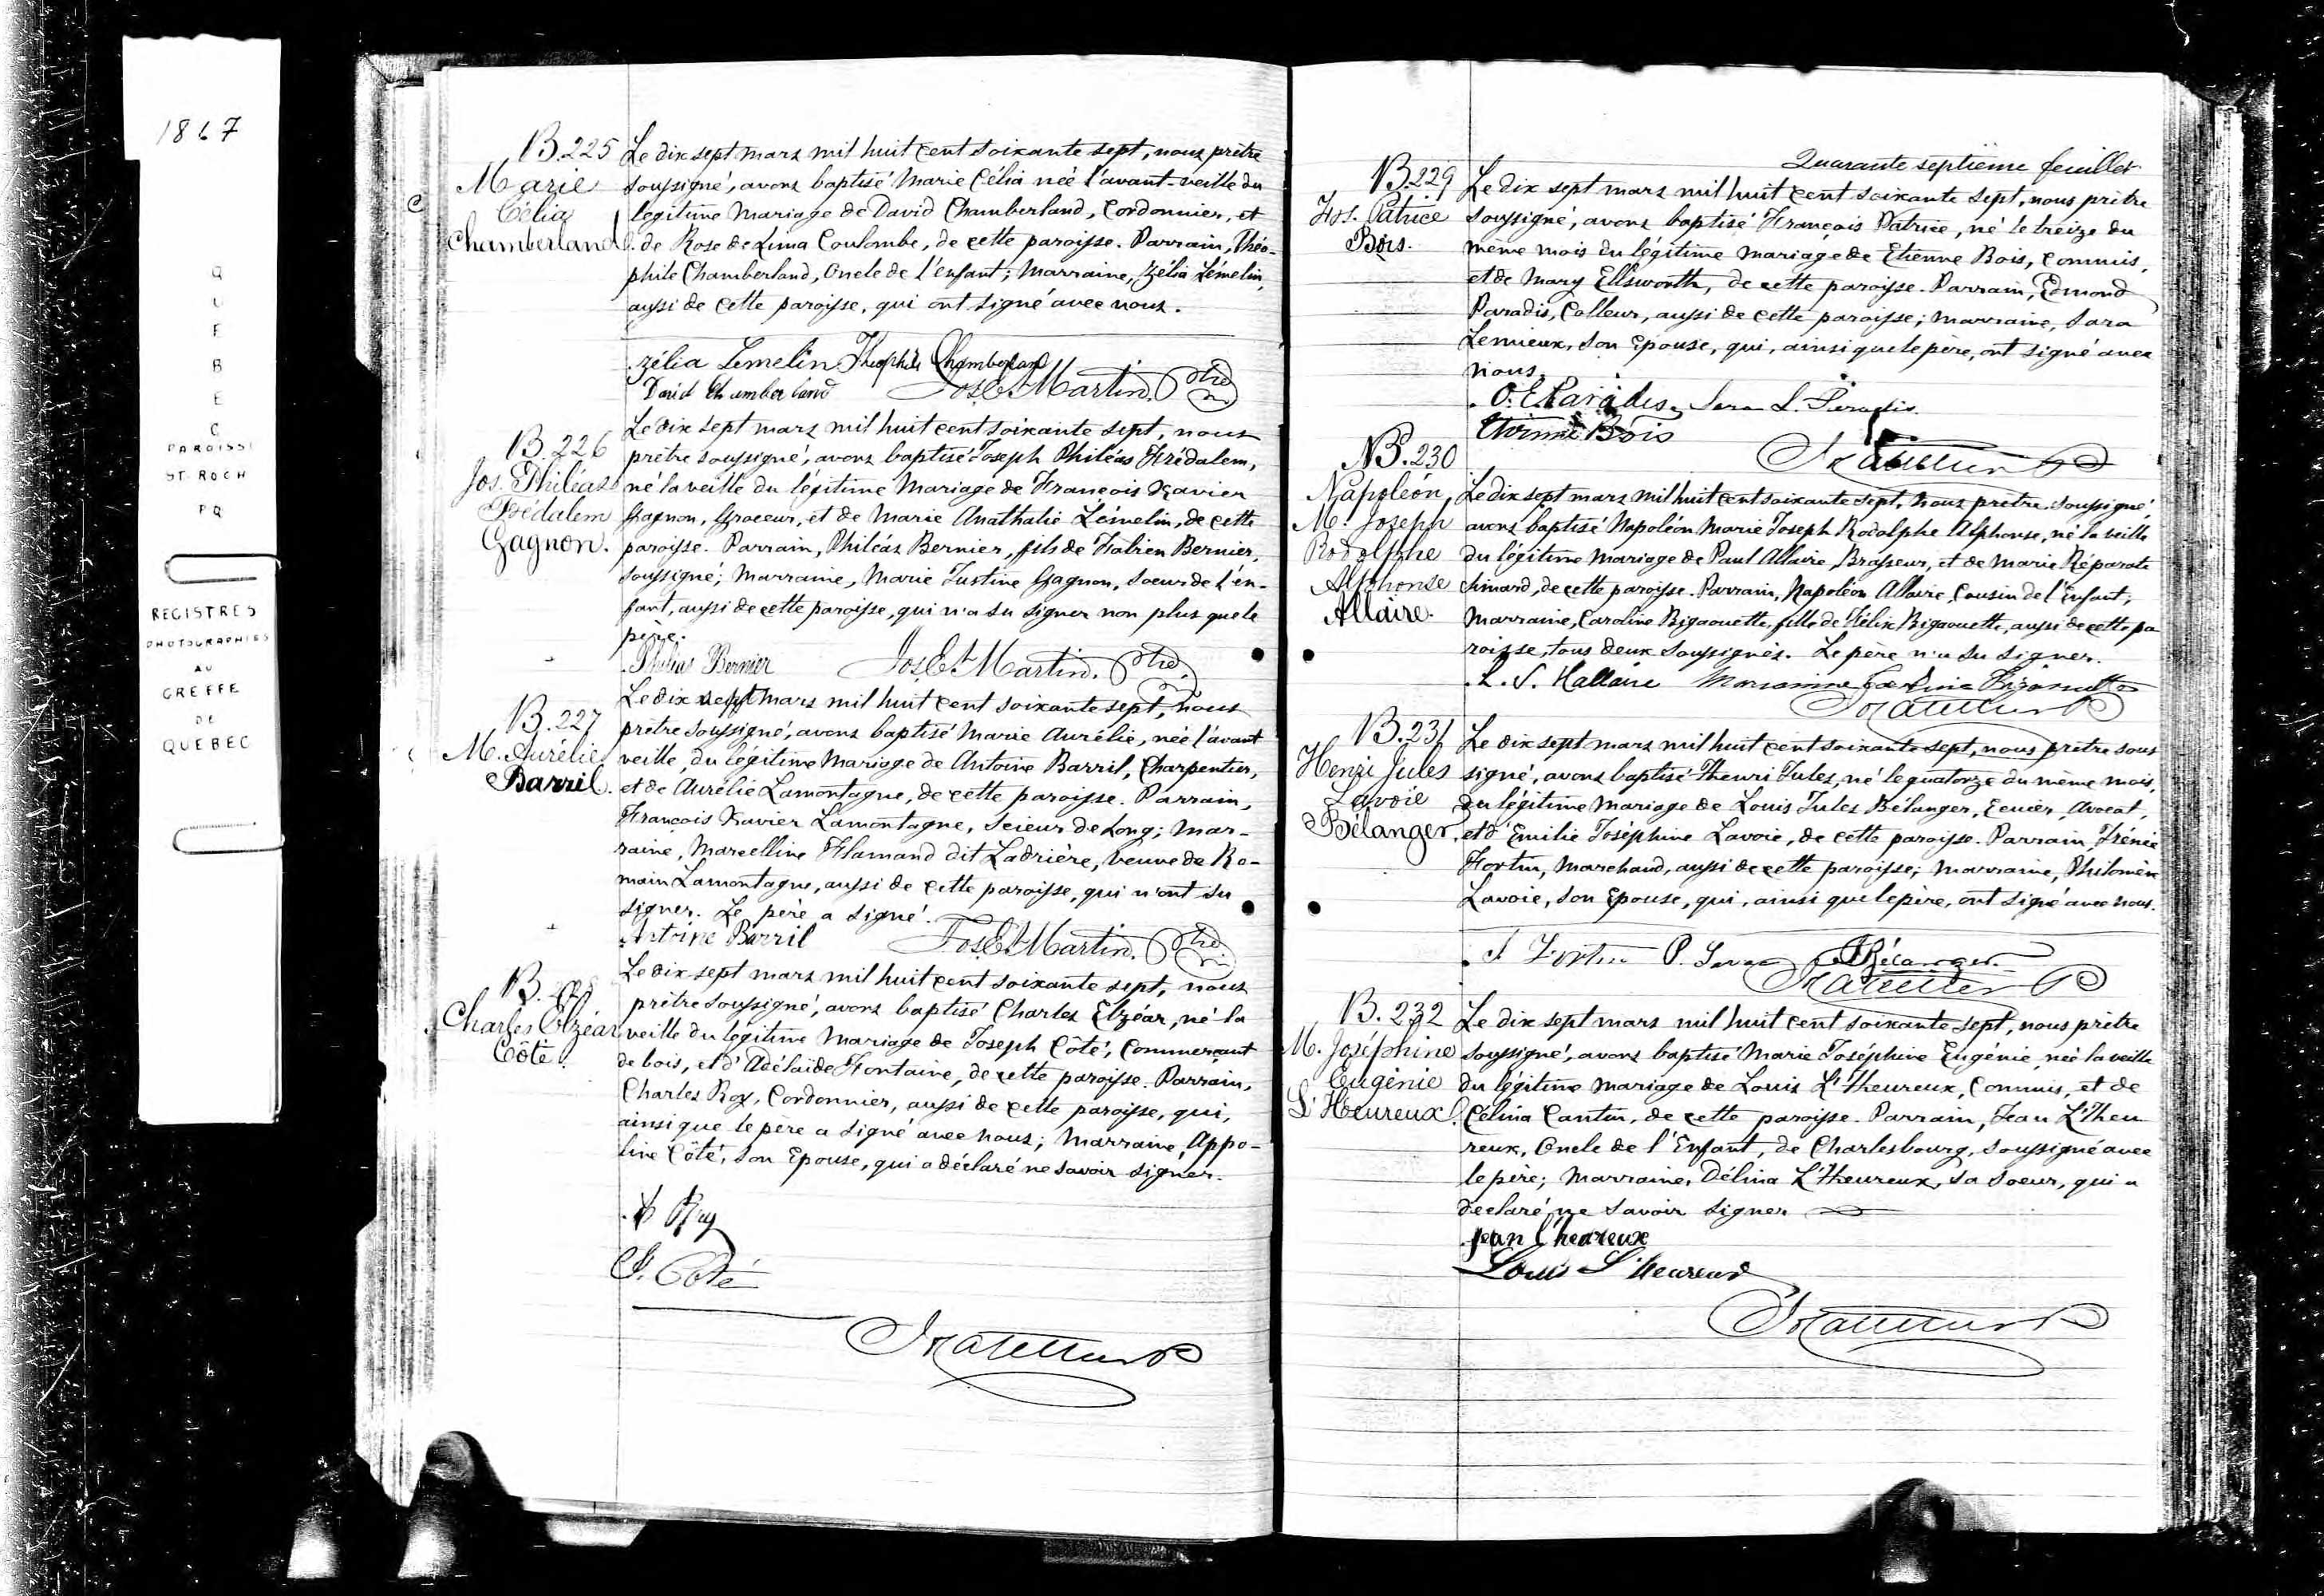 1867
QUEBEC
PAROISSE
ST. ROCH
PQ
REGISTRES
PHOTOGRAPHIES
AU
GREFFE
DE
QUEBEC
B.225
Marie
Célia
Chamberland
Le dix sept mars mil huit cent soixante sept, nous prêtre
soussigné, avons baptisé Marie Célia née l'avant-veille du
legitime Mariage de David Chamberland, Cordonnier, et
de Rose de Lima Coulombe, de cette paroisse. Parrain, Théo-
phile Chamberland, Oncle de l'enfant; Marraine, Zélia Lémelin,
aussi de cette paroisse, qui ont signé avec nous.
Zélia Lemelin Theophile Chamberland
David Chamberland Jos. E. Martin. Ptre
B.226
Jos. Philéas
Frédalem
Gagnon.
Le dix sept mars mil huit cent soixante sept, nous
prêtre soussigné, avons baptisé Joseph Philéas Frédalem,
né la veille du légitime Mariage de François Xavier
Gagnon, Graceur, et de Marie Anathalie Lémelin, de cette
paroisse. Parrain, Philéas Bernier, fils de Fabien Bernier,
soussigné; Marraine, Marie Justine Gagnon, Soeur de l'en-
fant, aussi de cette paroisse, qui n'a su signer non plus que le
père.
Phileas Bernier Jos. E. Martin. Ptre
B.227
M. Aurélie
Barril.
Le dix sept mars mil huit cent soixante sept, nous
prêtre soussigné, avons baptisé Marie Aurélie, née l'avant
veille, du légitime Mariage de Antoine Barril, Charpentier,
et de Aurélie Lamontagne, de cette paroisse. Parrain,
François Xavier Lamontagne, Scieur de Long; Mar-
raine, Marcelline Flamand dit Ladrière, veuve de Ro-
main Lamontagne, aussi de cette paroisse, qui n'ont su
signer. Le père a signé.
Antoine Barril Jos. E. Martin. Ptre
B.228
Charles Elzéar
Côté.
Le dix sept mars mil huit cent soixante sept, nous
prêtre soussigné, avons baptisé Charles Elzéar, né la
veille du légitime Mariage de Joseph Côté, Commerçant
de bois, et d'Adélaïde Fontaine, de cette paroisse. Parrain,
Charles Roy, Cordonnier, aussi de cette paroisse, qui,
ainsi que le père a signé avec nous; Marraine, Appo-
line Côté, son Epouse, qui a déclaré ne savoir signer.
Roy
J. Côté
Quarante septième feuillet
B.229
Frs. Patrice
Bois.
Le dix sept mars mil huit cent soixante sept, nous prêtre
soussigné, avons baptisé François Patrice, né le treize du
même mois du légitime mariage de Etienne Bois, Commis,
et de Mary Ellsworth, de cette paroisse. Parrain, Edmond
Paradis, Colleur, aussi de cette paroisse; Marraine, Sara
Lemieux, son Epouse, qui, ainsi que le père, ont signé avec
nous.
O. E. Paradis, Sara L. Paradis.
Etienne Bois
B.230
Napoléon,
M. Joseph
Rodolphe
Alphonse
Allaire.
Le dix sept mars mil huit cent soixante sept, nous prêtre soussigné,
avons baptisé Napoléon Marie Joseph Rodolphe Alphonse, né la veille
du légitime Mariage de Paul Allaire, Brasseur, et de Marie Réparate
Simard, de cette paroisse. Parrain, Napoléon Allaire, Cousin de l'Enfant;
Marraine, Caroline Bigaouette, fille de Félix Bigaouette, aussi de cette pa
roisse, tous deux soussignés. Le père n'a su signer.
L. N. Hallaire Caroline Bigaouette
B.231
Henri Jules
Lavoie
Bélanger.
Le dix sept mars mil huit cent soixante sept, nous prêtre sous
signé, avons baptisé Henri Jules, né le quatorze du même mois,
du légitime Mariage de Louis Jules Bélanger, Ecuier, Avocat,
et d'Emilie Joséphine Lavoie, de cette paroisse. Parrain, Irénée
Fortin, Marchand, aussi de cette paroisse; Marraine, Philomène
Lavoie, son Epouse, qui, ainsi que le père, ont signé avec nous.
I Fortin P. Lavoie Bélanger
B.232
M. Joséphine
Eugénie
L'Heureux.
Le dix sept mars mil huit cent soixante sept, nous prêtre
soussigné, avons baptisé Marie Joséphine Eugénie, née la veille
du légitime Mariage de Louis L'Heureux, Commis, et de
Célina Cantin, de cette paroisse. Parrain, Jean L'Heu
reux, Oncle de l'Enfant, de Charlesbourg, soussigné avec
le père; Marraine, Délina L'Heureux, sa soeur, qui a
déclaré ne savoir signer
jean l'heureux
Louis L'heureux